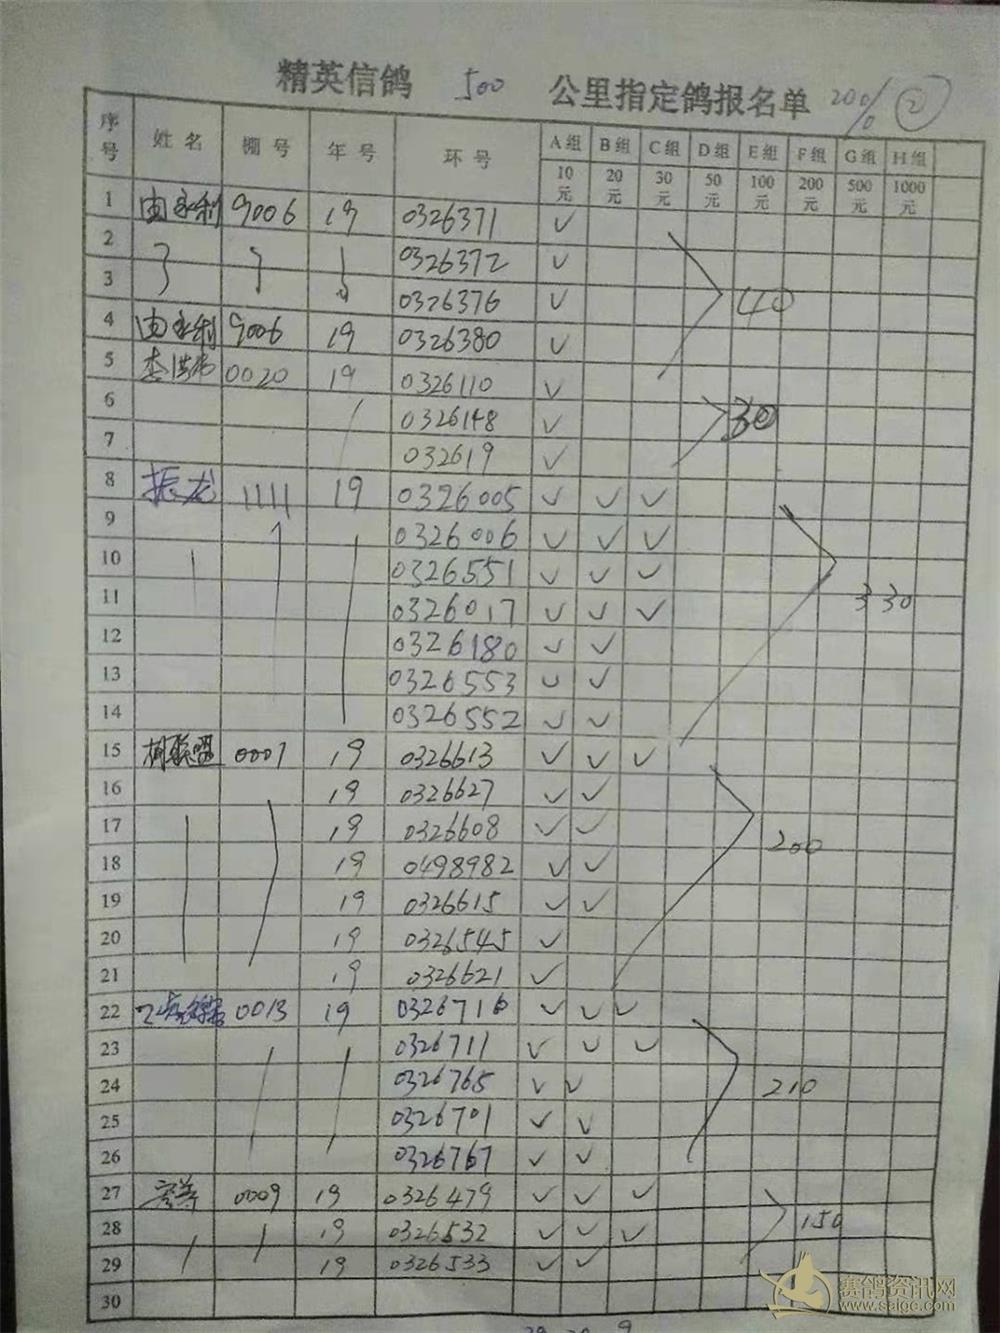 精英信鸽 500 公里指定鸽报名单 200% ②
序号 姓名 棚号 年号 环号 A组 B组 C组 D组 E组 F组 G组 H组
10元 20元 30元 50元 100元 200元 500元 1000元
1 由永利 9006 19 0326371 ✓
2 0326372 ✓
3 0326376 ✓ 40
4 由永利 9006 19 0326380 ✓
5 0020 19 0326110 ✓
6 0326148 ✓ 30
7 032619 ✓
8 振龙 1111 19 0326005 ✓ ✓ ✓
9 0326006 ✓ ✓ ✓
10 0326551 ✓ ✓ ✓
11 0326017 ✓ ✓ ✓ 330
12 0326180 ✓ ✓
13 0326553 ✓ ✓
14 0326552 ✓ ✓
15 联盟 0007 19 0326613 ✓ ✓ ✓
16 19 0326627 ✓ ✓
17 19 0326608 ✓ ✓ 200
18 19 0498982 ✓ ✓
19 19 0326615 ✓ ✓
20 19 0326545 ✓
21 19 0326621 ✓
22 0013 19 0326716 ✓ ✓ ✓
23 0326711 ✓ ✓ ✓
24 0326765 ✓ ✓ 210
25 0326701 ✓ ✓
26 0326767 ✓ ✓
27 0009 19 0326479 ✓ ✓ ✓
28 19 0326532 ✓ ✓ ✓ 150
29 19 0326533 ✓ ✓
30
赛鸽资讯网
www.saige.com